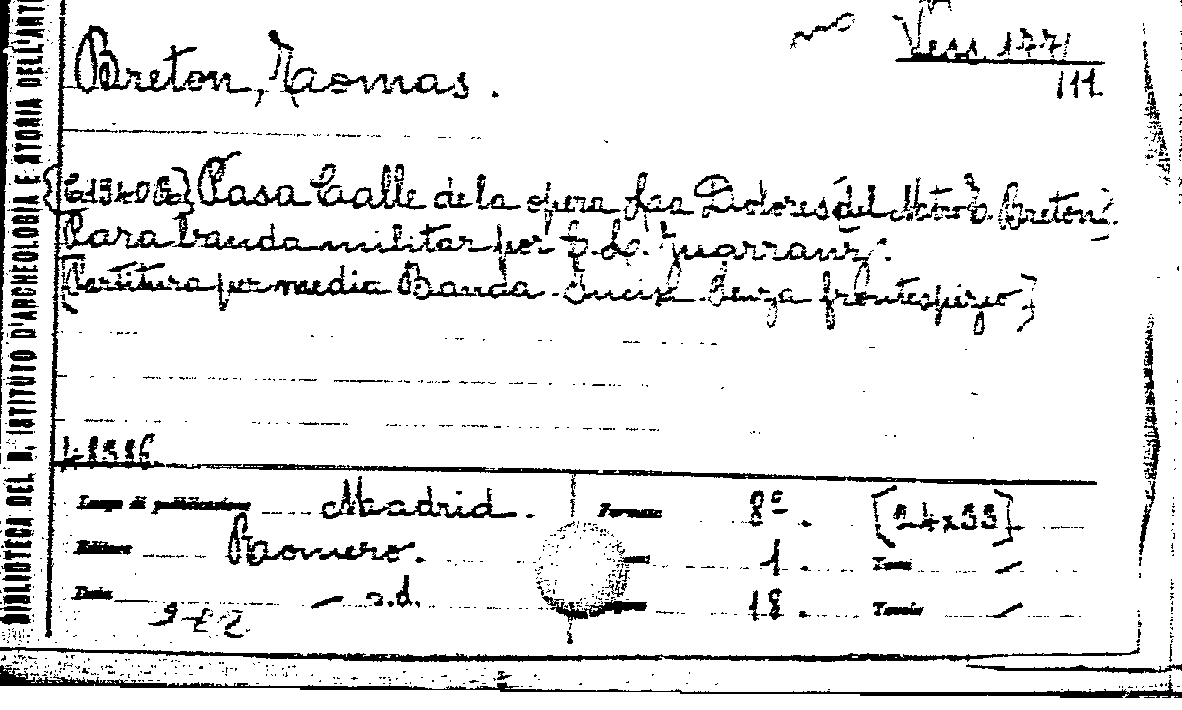 BIBLIOTECA DEL R. ISTITUTO D'ARCHEOLOGIA E STORIA DELL'ARTE
Vess. 1771
111.
Breton, Tomas.
Pasa Calle de la opera Las Dolores del Mtro D. Breton.
Para banda militar por E. L. Juarranz.
Partitura per media Banda. Incis. Senza frontespizio]
48886
Luogo di pubblicazione Madrid. Formato 8º. [24x33]
Editore Romero. 1. Tomi
Data - s.d. Pagine 18. Tavole